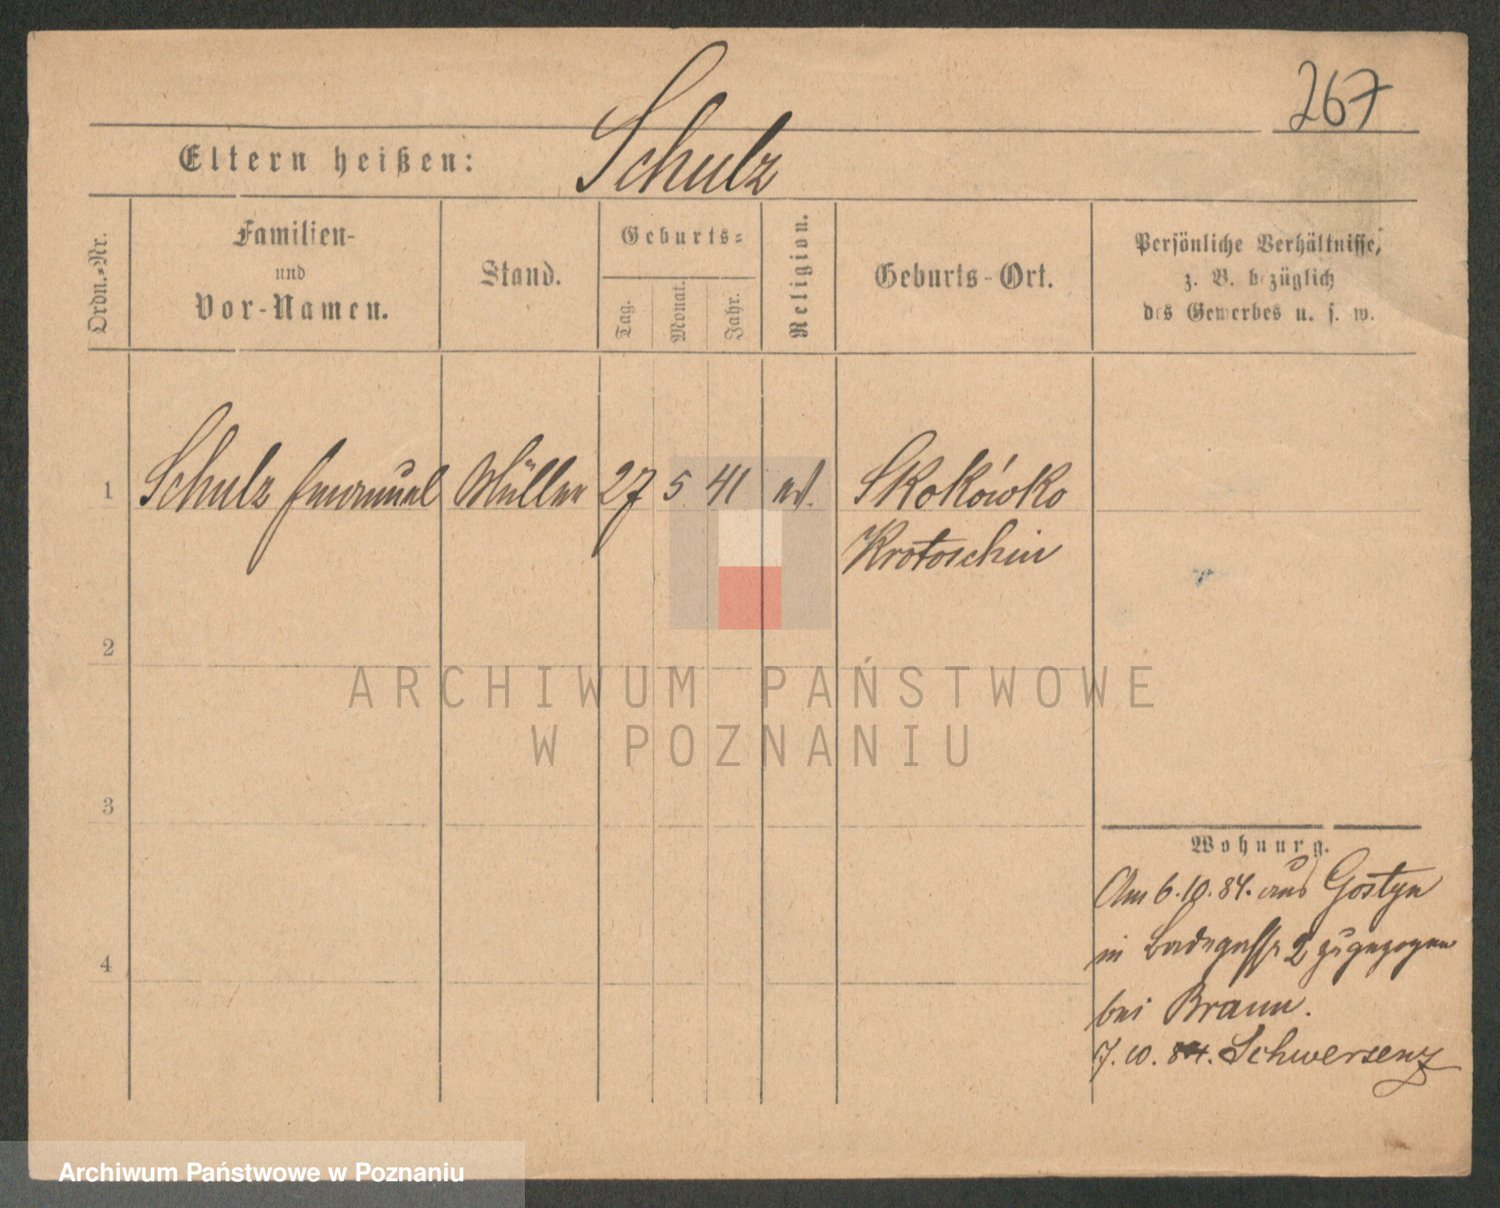 267
Eltern heißen: Schulz
Ordn.-Nr.
Familien-
und
Vor-Namen.
Stand.
Geburts-
Tag.
Monat.
Jahr.
Religion.
Geburts-Ort.
Persönliche Verhältnisse,
z. B. bezüglich
des Gewerbes u. s. w.
1 Schulz Emanuel Müller 27 5 41 ev. Skokówko
Krotoschin
2
3
4
Wohnung.
Am 6.10.84. aus Gostyn
in Badegasse 2 zugezogen
bei Braun.
7.10.84. Schwersenz
ARCHIWUM PAŃSTWOWE
W POZNANIU
Archiwum Państwowe w Poznaniu